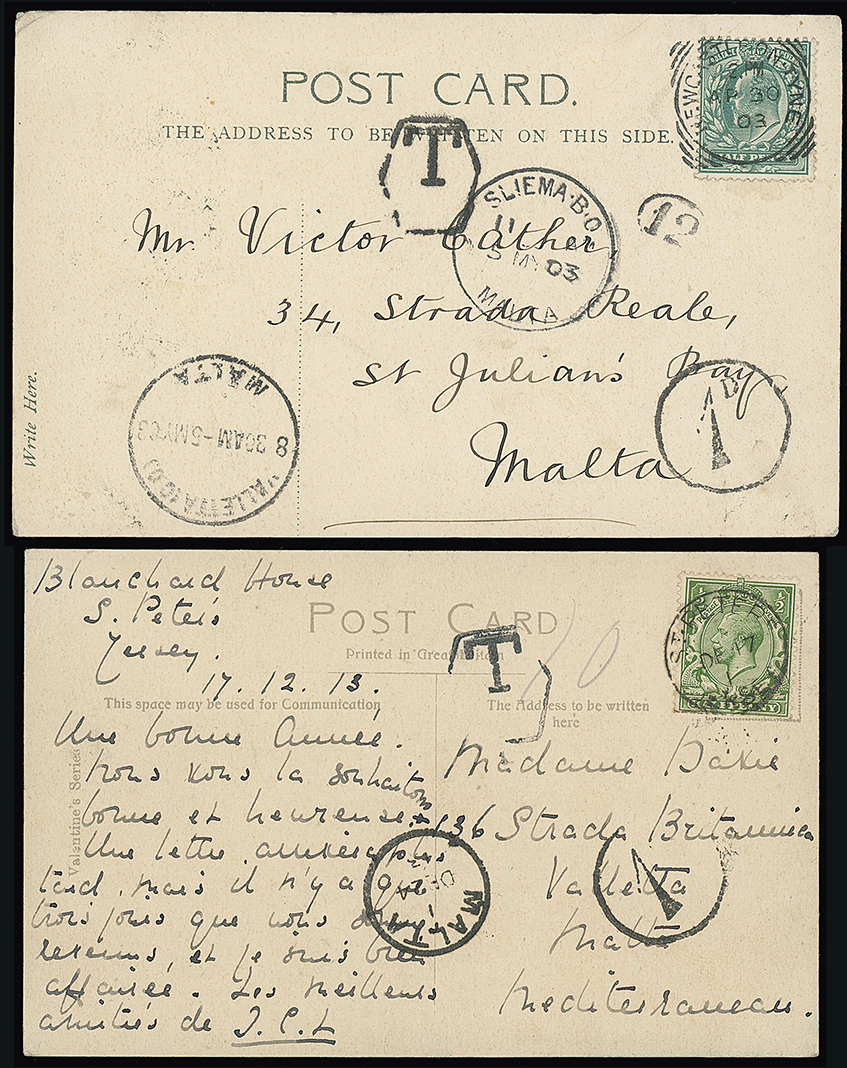 POST CARD.
THE ADDRESS TO BE WRITTEN ON THIS SIDE.
NEWCASTLE-ON-TYNE
PM
30
03
HALF PENNY
T
SLIEMA·B·O
11
5 MY 03
MALTA
12
Mr Victor Cather
34, Strada Reale,
St Julian's Bay
Malta
1 D
Write Here.
MALTA
8 30AM-5MY03
VALLETTA
Blanchard House
S. Peter's
Jersey.
17.12.13.
POST CARD
Printed in Great Britain
This space may be used for Communication
The Address to be written
here
T
10
½ ½
DE 17
Valentine's Series
Une bonne année.
nous vous la souhaitons
bonne et heureuse.
Une lettre arrivera plus
tard, mais il n'y a que
trois jours que nous sommes
revenus, et je suis bien
affairée. Les meilleurs
amitiés de J.C.L
MALTA
DE
Madame Bakie
136 Strada Britannica
Valletta
Malta
Mediterranean.